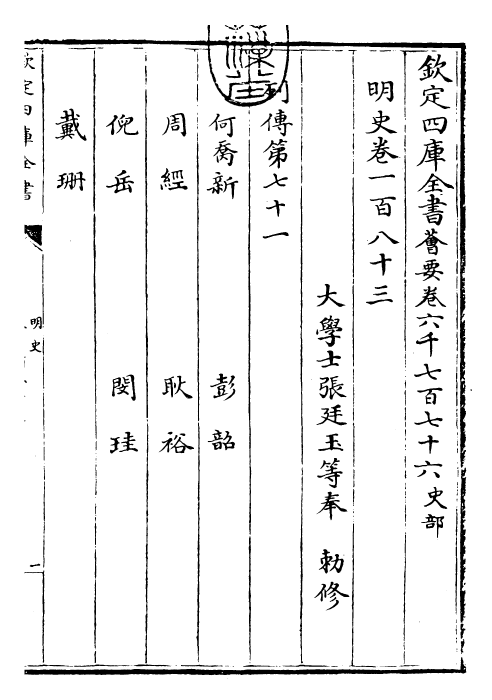 欽定四庫全書薈要卷六千七百七十六史部
明史卷一百八十三
大學士張廷玉等奉　勅修
列傳第七十一
何喬新　彭韶
周經　耿裕
倪岳　閔珪
戴珊
欽定四庫全書
明史
一